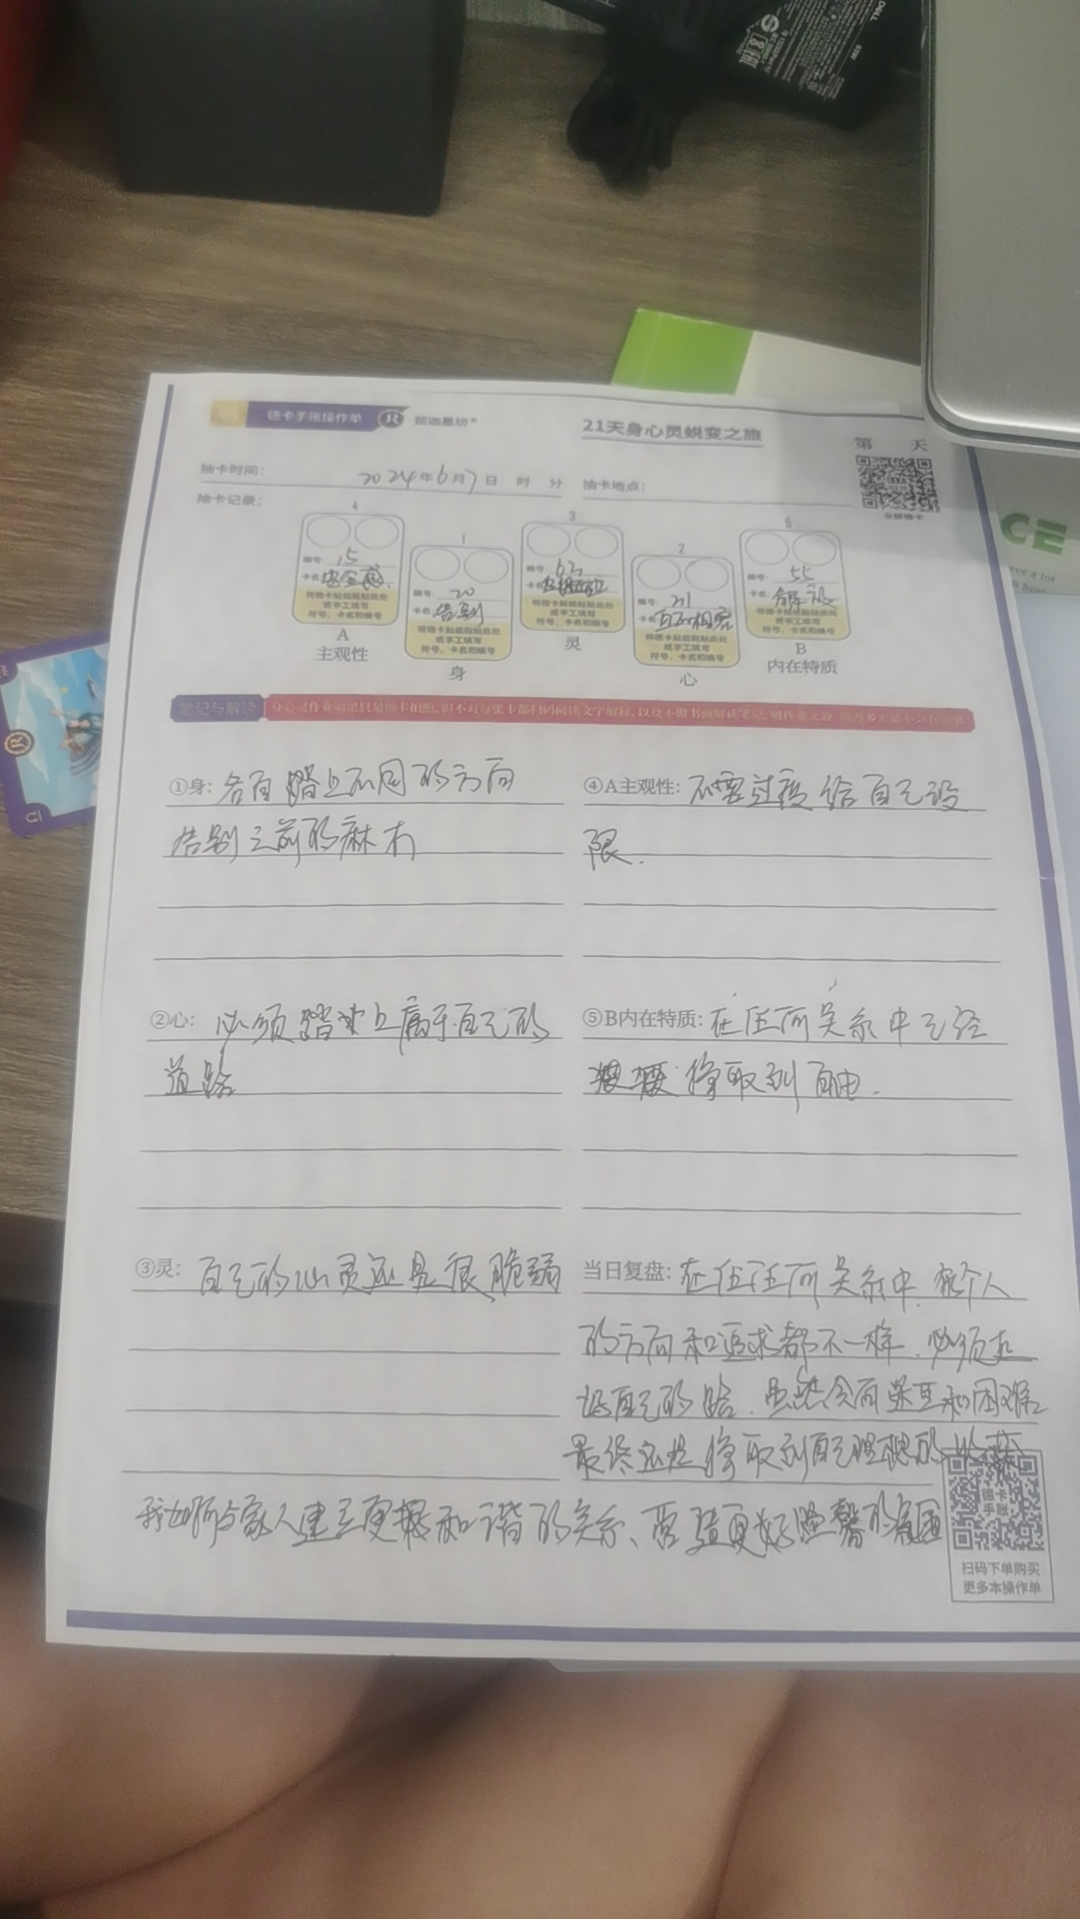 德卡手账操作单
21天身心灵蜕变之旅
第 天
抽卡时间: 2024年6月7日 时 分 抽卡地点:
抽卡记录:
4
编号: 15
卡名: 安全感
将德卡贴纸粘贴此处
或手工填写
符号、卡名和编号
A
主观性
1
编号: 20
卡名: 告别
将德卡贴纸粘贴此处
或手工填写
符号、卡名和编号
身
3
编号:
卡名:
将德卡贴纸粘贴此处
或手工填写
符号、卡名和编号
灵
2
编号: 21
卡名:
将德卡贴纸粘贴此处
或手工填写
符号、卡名和编号
心
5
编号: 55
卡名:
将德卡贴纸粘贴此处
或手工填写
符号、卡名和编号
B
内在特质
笔记与解读
①身: 各自踏上不同的方向
告别之前的麻木
④A主观性: 不要过度给自己设
限.
②心: 必须踏上属于自己的
道路
⑤B内在特质: 在任何关系中已经
获取到自由.
③灵: 自己的心灵还是很脆弱
当日复盘: 在任何关系中,每个人
的方向和追求都不一样.必须
自己的路.虽然会有 和困难
最终还是 取到自己理想的
我如何与家人建立更 和谐的关系、营造更好温馨的氛围
德卡
手账
扫码下单购买
更多本操作单
DELL
CE